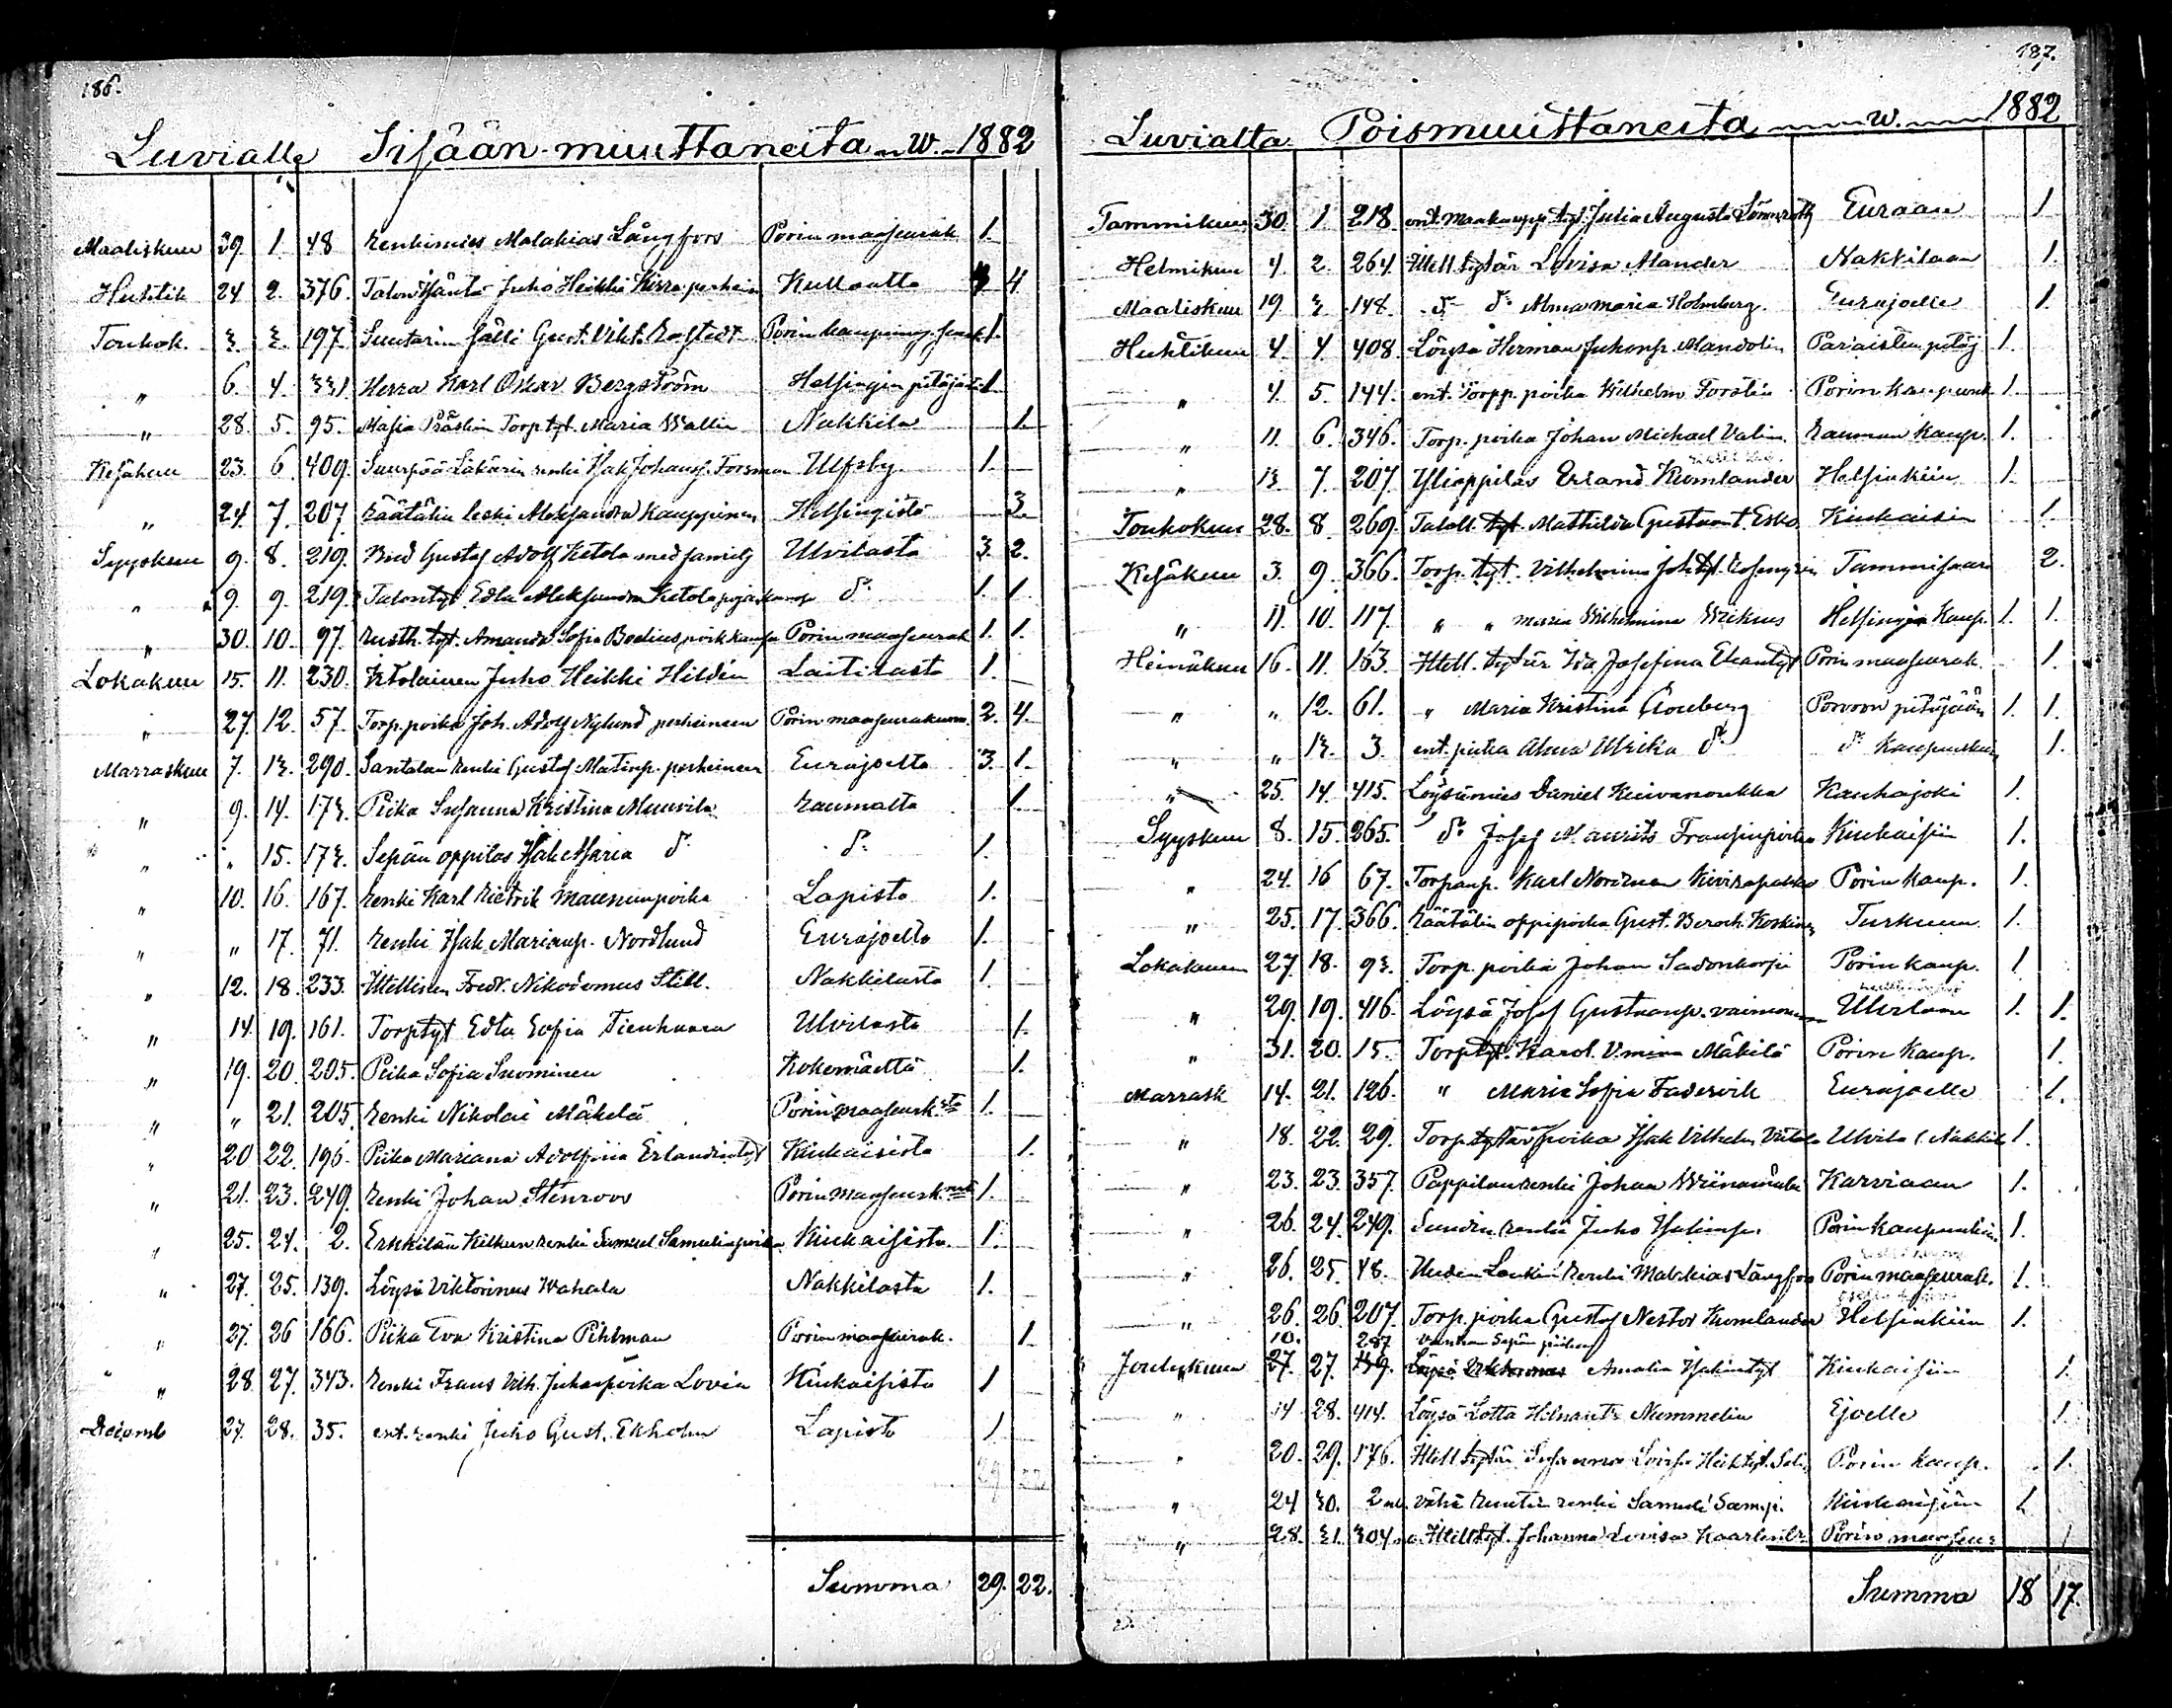 186.
Luvialle Sisään-muuttaneita W. 1882
Maaliskuu 29. 1. 48 Renkimies Malakias Långfors Porin maaseurak 1.
Huhtik 24 2. 376. Talon Isäntä Juho Heikki Kirra perhein Kullaalta 4 4.
Toukok. 3. 3. 197. Suutarin sälli Gust. Vikt. Porin kaupung. seurak 1.
" 6. 4. 331 Herra Karl Oskar Bergström Helsingin pitäjästä 1.
" 28. 5. 95. Torp tyt. Maria Wallin Nakkila 1.
Kesäkuu 23. 6 409. renki Isak Johansp. Forsman Ulfsby 1.
" 24. 7. 207. Räätälin leski Aleksandra Kauppinen Helsingistä 3.
Syyskuu 9. 8. 219. Bnd Gustaf Adolf Ketola med familj Ulvilasta 3. 2.
" 9. 9. 219. Talontyt Edla Aleksandra Ketola d:o 1. 1.
" 30. 10. 97. Rusth. tyt. Amanda Sofia Bodius Porin maaseurak 1. 1.
Lokakuu 15. 11. 230. Itolainen Juho Heikki Hildén Laitilasta 1.
" 27. 12. 57. Torp. poika Joh. Adolf Nylund perheineen Porin maaseurakunn. 2. 4.
Marraskuu 7. 13. 290. Santalan renki Gustaf Matinp. perheineen Eurajoelta 3. 1.
" 9. 14. 173. Piika Susanna Kristina Muurila Raumalta 1.
" " 15. 173. Sepän oppilas Isak d:o d:o 1.
" 10. 16. 167. Renki Karl Rietrik Maununpoika Lapista 1.
" " 17. 71. Renki Isak Marianp. Nordlund Eurajoelta 1.
" 12. 18. 233. Itellisen Fredr. Nikodemus Still. Nakkilasta 1.
" 14. 19. 161. Torptyt Edla Sofia Tienhaara Ulvilasta 1.
" 19. 20. 205. Piika Sofia Suominen Kokemäeltä 1.
" " 21. 205. Renki Nikolai Mäkelä Porin maaseurk:sta 1.
" 20 22. 196. Piika Mariana Adolfiina Erlandintyt Kiukaisista 1.
" 21. 23. 249. Renki Johan Stenroos Porin maaseurk 1.
" 25. 24. 2. Erkkilän renki Samuel Samulinpoika Kiukaisista 1.
" 27. 25. 139. Löysä Viktorinus Wahala Nakkilasta 1.
" 27. 26 166. Piika Eva Kristina Pihlman Porin maaseurak. 1.
" 28. 27. 343. Renki Frans Vilh. Juhanpoika Lovin Kiukaisista 1
Decemb 27. 28. 35. ent. renki Juho Gust. Ekholm Lapista 1
29 22
Summa 29. 22.
187.
Luvialta Poismuuttaneita W. 1882
Tammikuu 30. 1. 218. tyt. Julia Augusta Lönnroth Euraan 1
Helmikuu 4. 2. 264. Itell tytär Lovisa Alander Nakkilaan 1.
Maaliskuu 19 3. 148. d:o d:o Alma Maria Holmberg. Eurajoelle 1.
Huhtikuu 4. 4 408. Löysä Herman Juhonp. Mandolin Paraisten pitäj 1.
" 4. 5. 144. ent. Torpp. poika Wilhelm Forstén Porin kaupunk 1.
" 11. 6. 346. Torp. poika Johan Michael Valin Rauman kaup. 1.
" 13. 7. 207. Ylioppilas Erland Kumlander Helsinkiin 1.
Toukokuu 28. 8. 269. Taloll. tyt. Mathilda Gustaant. Esko Kiukaisiin 1.
Kesäkuu 3. 9. 366. Torp. tyt. Vilhelmina Joh.tyt. Tammisaari 2.
" 11. 10. 117. " " Maria Wilhelmina Wikius Helsingin Kaup. 1. 1.
Heinäkuu 16. 11. 163. Itell. tytär Ida Josefina Porin maaseurak. 1.
" " 12. 61. " Maria Kristina Porvoon pitäjään 1. 1.
" " 13. 3. ent. piika Alma Ulrika d:o d:o kaupunkiin 1.
" 25. 14. 415. Löysämies Daniel Kuivanoukka Kauhajoki 1.
Syyskuu 8. 15. 265. d:o Josef Maurits Fransinpoika Kiukaisiin 1.
" 24. 16 67. Torpanp. Karl Nordman Kivirapakko Porin kaup. 1.
" 25. 17. 366. Räätälin oppipoika Gust. Koskinen Turkuun 1.
Lokakuun 27. 18. 93. Torp. poika Johan Sadonkorpi Porin kaup. 1
" 29. 19. 416. Löysä Josef Gustaanp. vaimoneen Ulvilaan 1. 1.
" 31. 20. 15. Torptyt. Karol. Vmina Mäkilä Porin kaup. 1.
Marrask 14. 21. 126. " Maria Sofia Fadervik Eurajoelle 1.
" 18. 22. 29. Torp. poika Isak Vilhelm Ulvila (Nakkila 1.
" 23. 23. 357. Pappilan renki Johan Wiinamäki Karviaan 1.
" 26. 24. 249. Sundin renki Juho Porin kaupunkiin 1.
" 26. 25. 48. Uuden Lankin renki Malakias Långfors Porin maaseurak. 1.
" 26. 26. 207. Torp. poika Gustaf Nestor Kumlander Helsinkiin 1.
10. 287 Vanhan Sepän
Joulukuun 27. 27. 139. Löysä Viktorinus Amalia Kiukaisiin 1.
" 14 28. 414. Löysä Lotta Nummelin Ejoelle 1
" 20. 29. 176. Itell tytär Susanna Lovisa Heik.tyt. Porin kaup. 1.
" 24 30. 2 Vähä renki Samuli Kiukaisiin 1
" 28. 31. 304 Itell tyt. Johanna Lovisa Porin maaseu: 1
Summa 18 17.